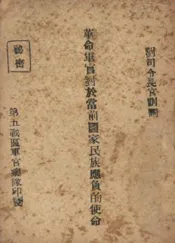 副司令長官訓詞
革命軍官對於當前國家民族應負的使命
秘密
第五戰區軍官訓練班印發